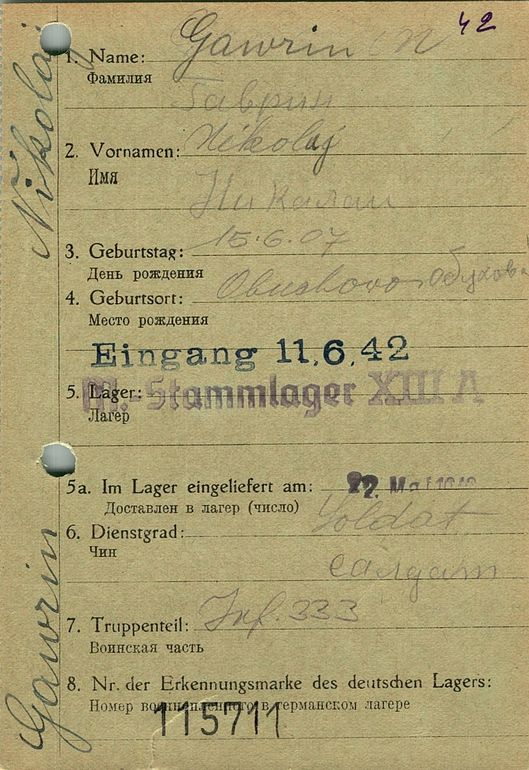 42
1. Name: Gawrin N
Фамилия
Гаврин
2. Vornamen: Nikolaj
Имя
Никалаи
3. Geburtstag: 15.6.07
День рождения
4. Geburtsort: Obuchovo Обухова
Место рождения
Eingang 11.6.42
5. Lager: M.-Stammlager XIII A
Лагер
5a. Im Lager eingeliefert am: 22. Mai 1942
Доставлен в лагер (число)
6. Dienstgrad: Soldat
Чин
салдат
7. Truppenteil: Inf. 333
Воинская часть
8. Nr. der Erkennungsmarke des deutschen Lagers:
Номер военнопленного в германском лагере
115711
Gawrin Nikolaj